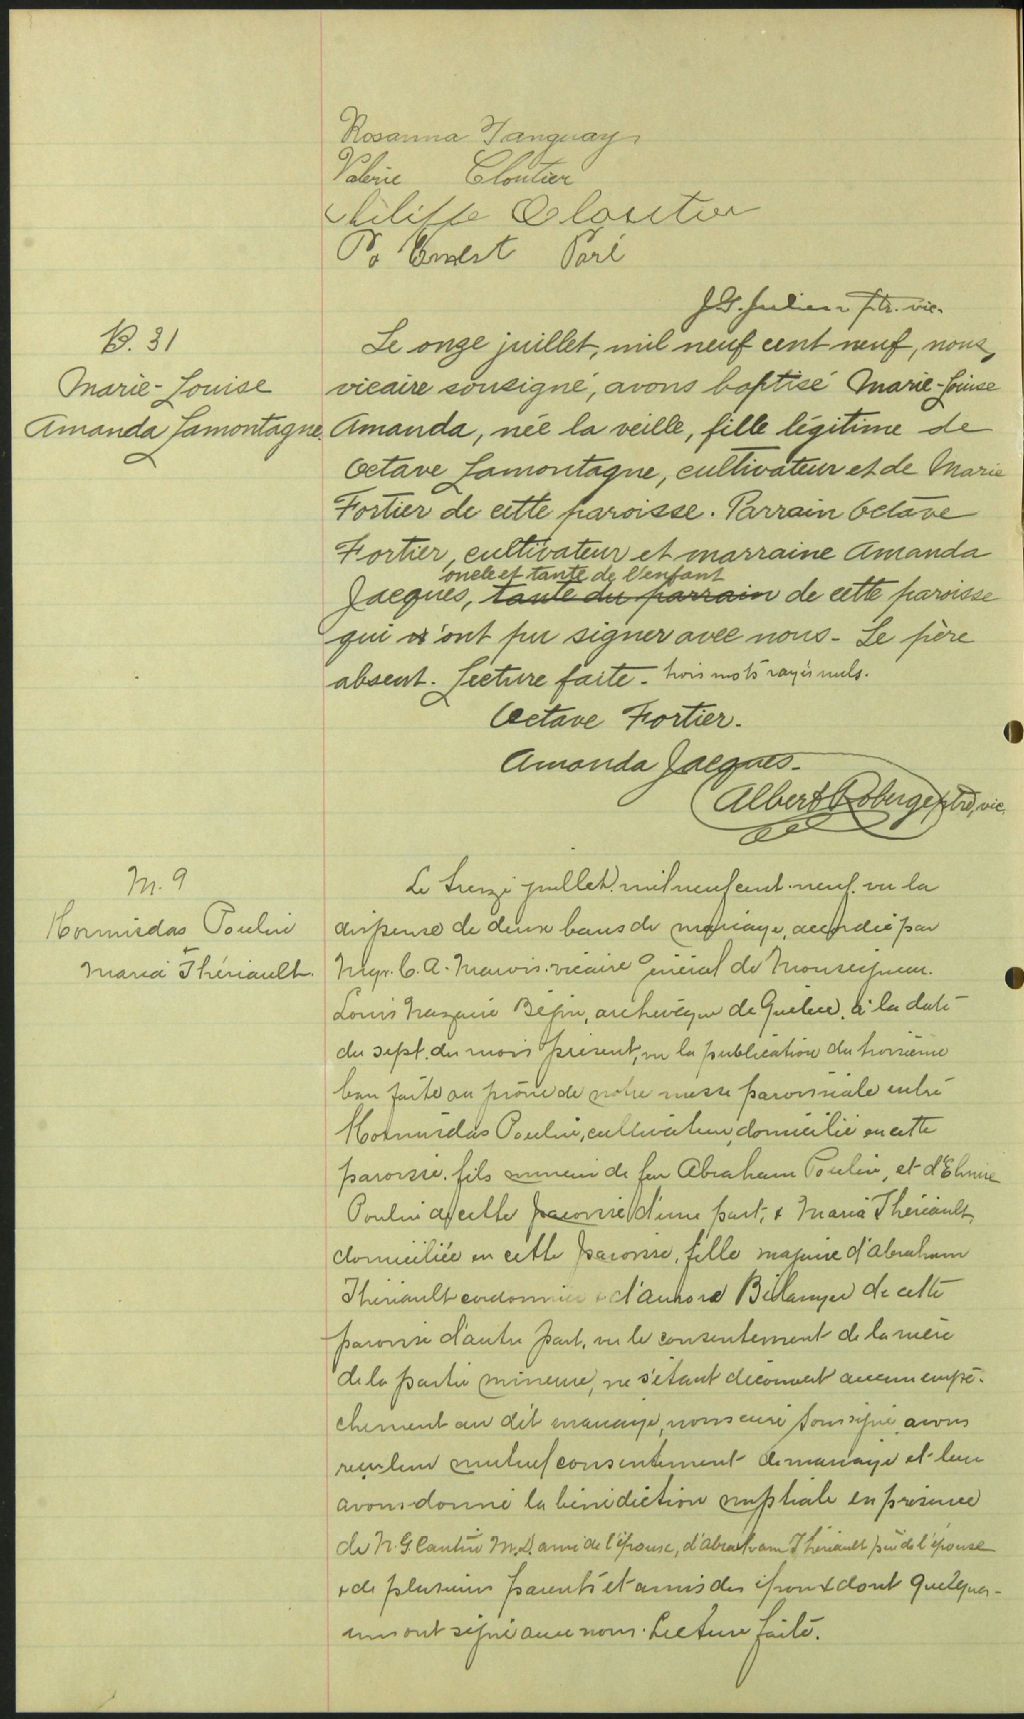 Rosanna Tanguay
Valerie Cloutier
Philippe Cloutier
Ernest Paré
J.G. Julien ptr. vic.
B. 31
Marie-Louise
Amanda Lamontagne.
Le onze juillet, mil neuf cent neuf, nous,
vicaire sousigné, avons baptisé Marie-Louise
Amanda, née la veille, fille légitime de
Octave Lamontagne, cultivateur et de Marie
Fortier de cette paroisse. Parrain Octave
Fortier, cultivateur et marraine Amanda
oncle et tante de l'enfant
Jacques, tante du parrain de cette paroisse
qui ont pu signer avec nous - Le père
absent. Lecture faite - trois mots rayés nuls.
Octave Fortier.
Amanda Jacques.
Albert Roberge, ptre, vic.
M. 9
Hormisdas Poulin
+
Maria Thériault.
Le treize juillet mil neuf cent neuf, vu la
dispense de deux bans de mariage, accordée par
Mgr. C. A. Marois, vicaire Général de Monseigneur
Louis Nazaire Bégin, archevêque de Québec, à la date
du sept du mois présent, vu la publication du troisième
ban faite au prône de notre messe paroissiale entre
Hormisdas Poulin, cultivateur, domicilié en cette
paroisse, fils mineur de feu Abraham Poulin, et d'Elmire
Poulin de cette paroisse d'une part, & Maria Thériault,
domiciliée en cette paroisse, fille majeure d'Abraham
Thériault cordonnier & d'Aurore Bélanger de cette
paroisse d'autre part, vu le consentement de la mère
de la partie mineure, ne s'étant découvert aucun empê-
chement au dit mariage, nous curé soussigné, avons
reçu leur mutuel consentement de mariage et leur
avons donné la bénédiction nuptiale en présence
de N. G. Cantin M.D. ami de l'épouse, d'Abraham Thériault père de l'épouse
& de plusieurs parents et amis des époux dont quelques-
uns ont signé avec nous. Lecture faite.